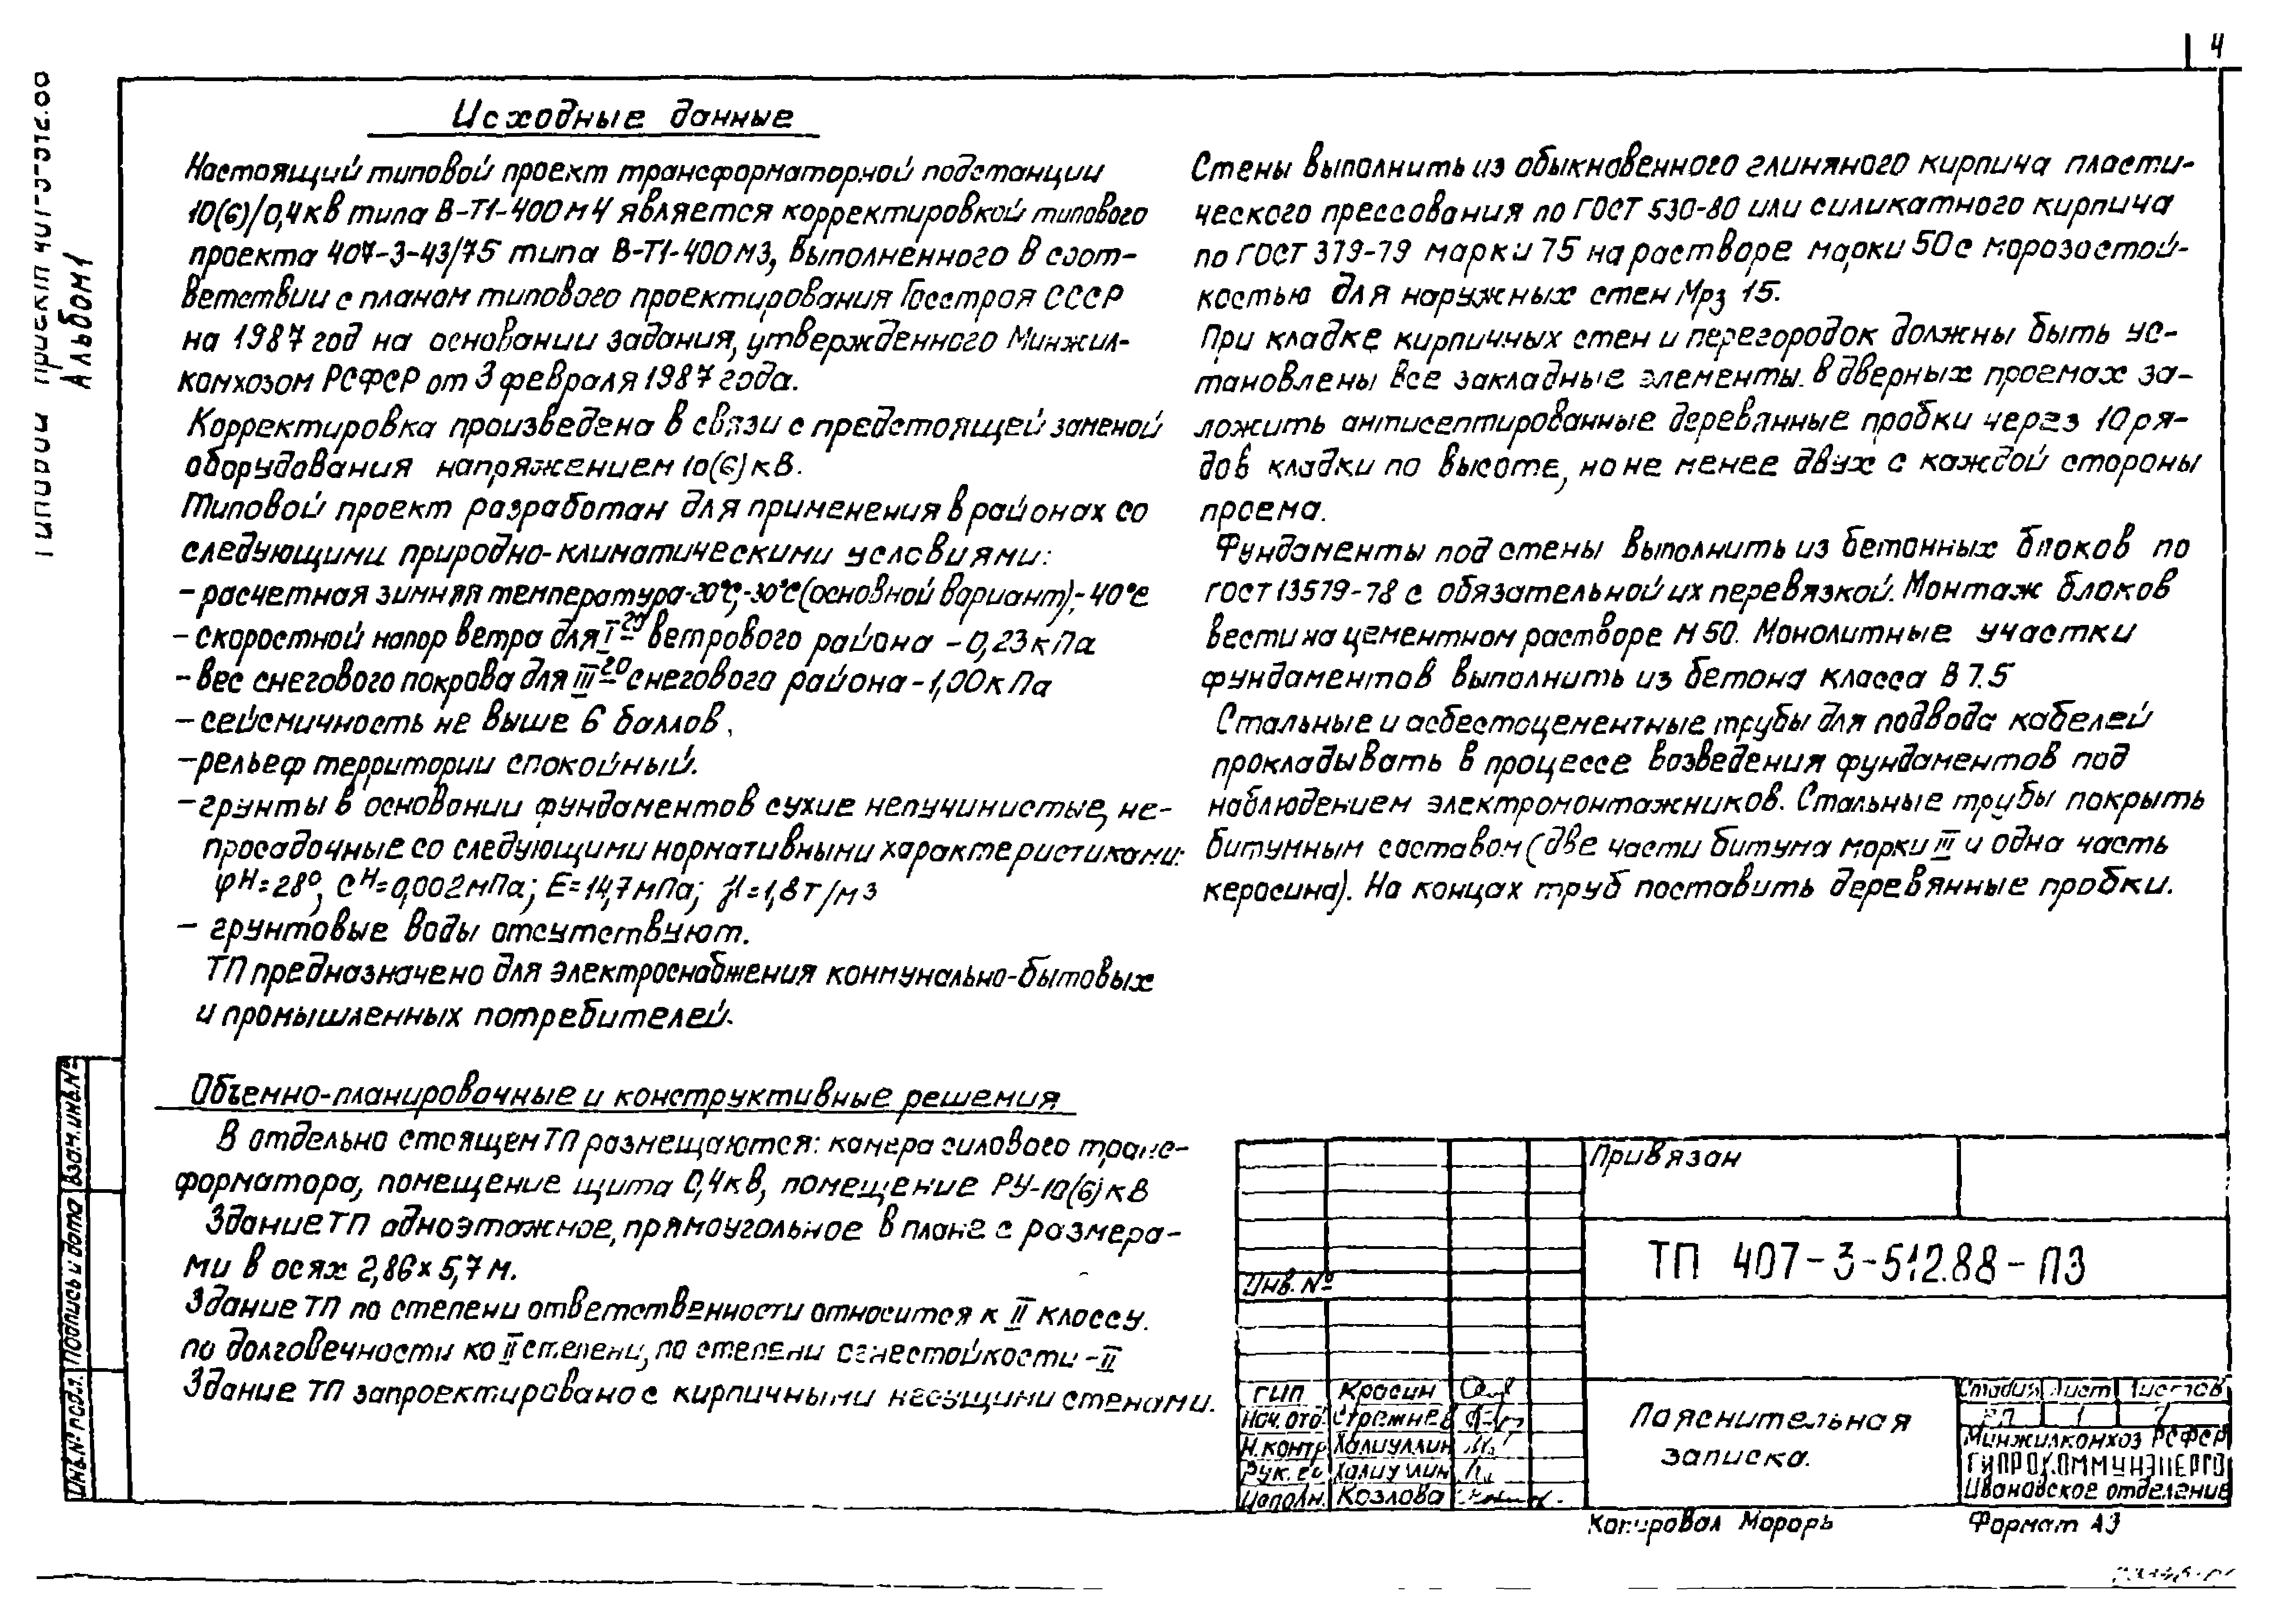 4
Типовой проект 407-3-512.88
Альбом 1
Исходные данные
Настоящий типовой проект трансформаторной подстанции
10(6)/0,4 кВ типа В-Т1-400 М4 является корректировкой типового
проекта 407-3-43/75 типа В-Т1-400 М3, выполненного в соот-
ветствии с планом типового проектирования Госстроя СССР
на 1987 год на основании задания, утвержденного Минжил-
комхозом РСФСР от 3 февраля 1987 года.
Корректировка произведена в связи с предстоящей заменой
оборудования напряжением 10(6) кВ.
Типовой проект разработан для применения в районах со
следующими природно-климатическими условиями:
- расчетная зимняя температура -20°С, -30°С (основной вариант); -40°С
- скоростной напор ветра для Iго ветрового района - 0,23 кПа
- вес снегового покрова для IIIго снегового района - 1,00 кПа
- сейсмичность не выше 6 баллов.
- рельеф территории спокойный.
- грунты в основании фундаментов сухие непучинистые, не-
просадочные со следующими нормативными характеристиками:
φн=28°, Сн=0,002мПа; Е=14,7мПа; γ=1,8т/м3
- грунтовые воды отсутствуют.
ТП предназначено для электроснабжения коммунально-бытовых
и промышленных потребителей.
Объемно-планировочные и конструктивные решения
В отдельно стоящем ТП размещаются: камера силового транс-
форматора, помещение щита 0,4кВ, помещение РУ-10(6)кВ
Здание ТП одноэтажное, прямоугольное в плане с размера-
ми в осях 2,86×5,7 м.
Здание ТП по степени ответственности относится к II классу.
по долговечности ко II степени, по степени огнестойкости - II
Здание ТП запроектировано с кирпичными несущими стенами.
Стены выполнить из обыкновенного глиняного кирпича пласти-
ческого прессования по ГОСТ 530-80 или силикатного кирпича
по ГОСТ 379-79 марки 75 на растворе марки 50 с морозостой-
костью для наружных стен Мрз 15.
При кладке кирпичных стен и перегородок должны быть ус-
тановлены все закладные элементы. В дверных проемах за-
ложить антисептированные деревянные пробки через 10 ря-
дов кладки по высоте, но не менее двух с каждой стороны
проема.
Фундаменты под стены выполнить из бетонных блоков по
ГОСТ 13579-78 с обязательной их перевязкой. Монтаж блоков
вести на цементном растворе М50. Монолитные участки
фундаментов выполнить из бетона класса В 7.5
Стальные и асбестоцементные трубы для подвода кабелей
прокладывать в процессе возведения фундаментов под
наблюдением электромонтажников. Стальные трубы покрыть
битумным составом (две части битума марки III и одна часть
керосина). На концах труб поставить деревянные пробки.
Взам.инв.№
Подпись и дата
Инв.№ подл.
Привязан
Инв. №
ТП 407-3-512.88-ПЗ
ГИП Красин
Нач. отд. Стрежнев
Н.контр Халиуллин
Рук. Халиуллин
Исполн. Козлова
Пояснительная
записка.
Стадия Лист Листов
РП 1
Минжилкомхоз РСФСР
ГИПРОКОММУНЭНЕРГО
Ивановское отделение
Копировал Морорь
Формат А3